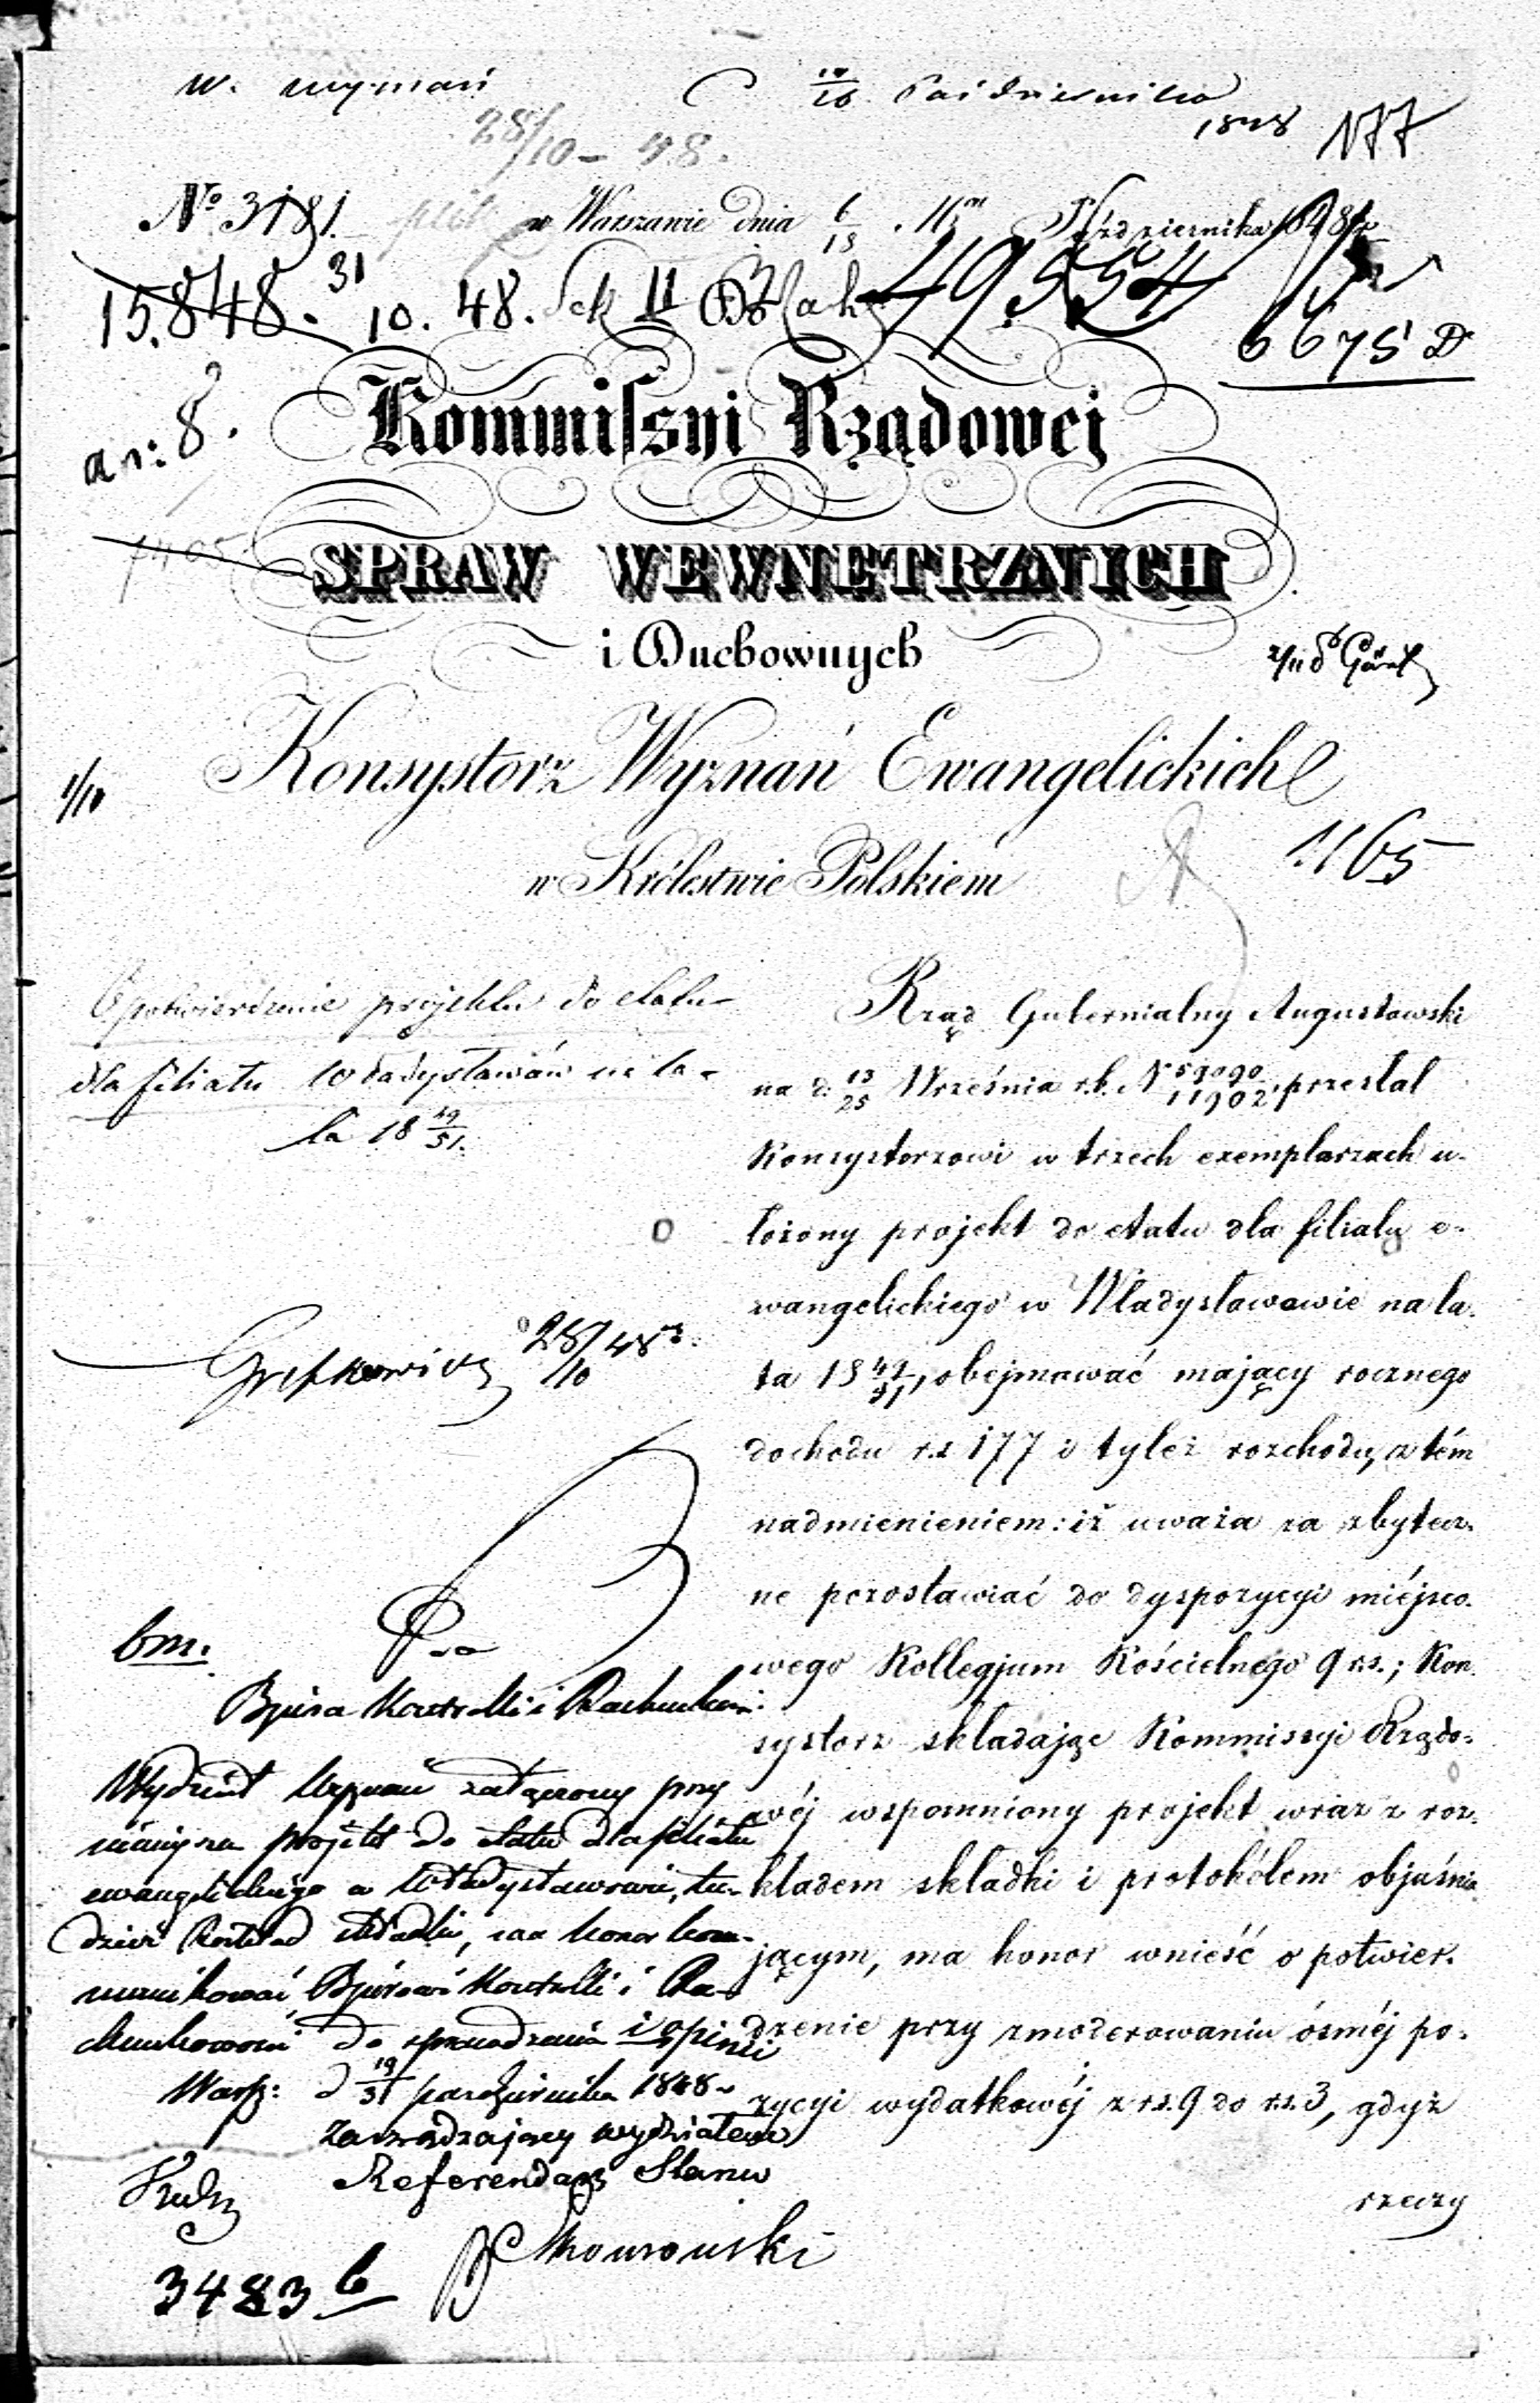 W. wyznań
16 Października
1848 177
28/10 - 48.
No 3181. w Warszawie dnia 6/18 Października 1848 r.
15.848. 31 10. 48. Sek II 49554
6675 D
a n: 8.
Kommissyi Rządowej
SPRAW WEWNĘTRZNYCH
i Duchownych
Konsystorz Wyznań Ewangelickich
1/10
w Królestwie Polskiem
1165
O potwierdzenie projektu do etatu
dla filiału Władysławów na la-
ta 18 49/51.
Rząd Gubernialny Augustowski
na d. 13/25 Września r.b. N 59090/11902, przesłał
Konsystorzowi w trzech exemplarzach u-
łożony projekt do etatu dla filiału e-
wangelickiego w Władysławowie na la-
ta 18 49/51, obejmować mający rocznego
dochodu r.s 177 i tyleż rozchodu, z tém
nadmienieniem: iż uważa za zbytecz-
ne pozostawiać do dyspozycyi miéjsco-
wego Kollegjum Kościelnego 9 r.s.; Kon-
systorz składając Kommissyi Rządo-
wéj wspomniony projekt wraz z roz-
kładem składki i protokółem objaśnia-
jącym, ma honor wnieść o potwier-
dzenie przy zmoderowaniu ósméj po-
zycyi wydatkowéj z r.s. 9 do r.s. 3, gdyż
rzeczy
28/10 48
bm.
Do
Bjura Kontrolli i Rachunkow.
Wydział Wyznań załączony przy
niniejszem projekt do etatu dla filiału
ewangelickiego w Władysławowie, tu-
dzież Rozkład składki, ma honor kom-
munikować Bjurowi Kontrolli i Ra-
chunkowości do sprawdzenia i opinii
Warsz: d 19/31 października 1848
Zarządzający wydziałem
Referendarz Stanu
3483 b